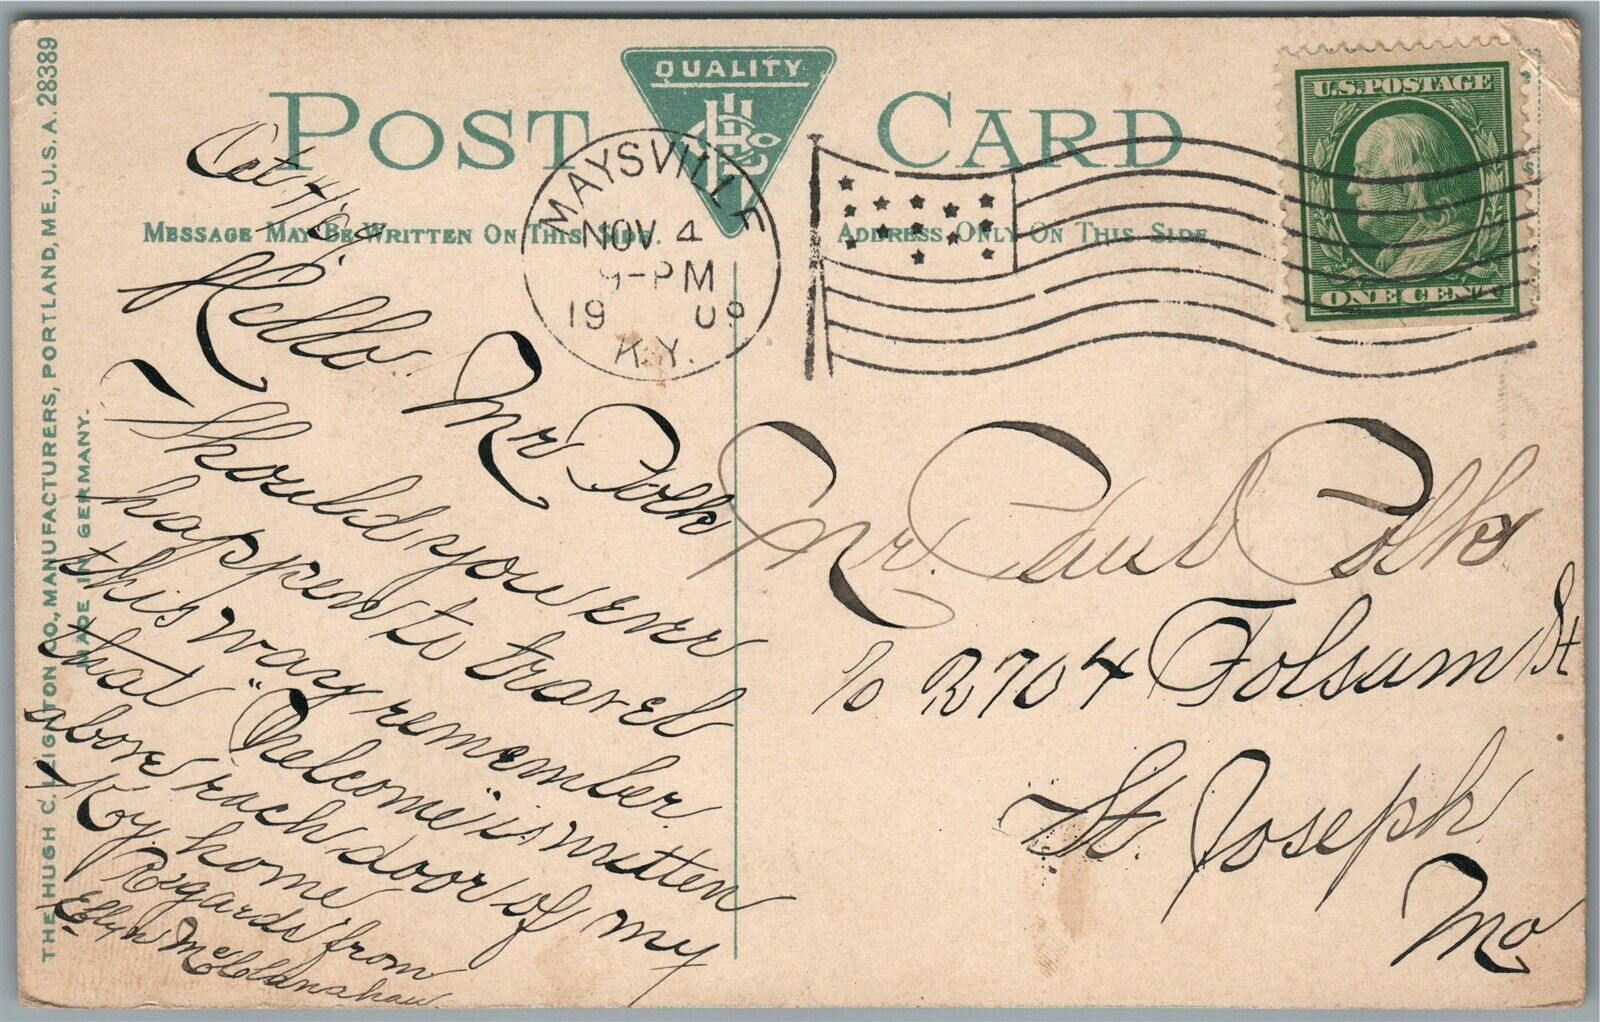 POST CARD
QUALITY
MESSAGE MAY BE WRITTEN ON THIS SIDE.
ADDRESS ONLY ON THIS SIDE
U.S. POSTAGE
ONE CENT
MAYSVILLE
NOV 4
9-PM
19 09
K.Y.
THE HUGH C. LEIGHTON CO., MANUFACTURERS, PORTLAND, ME., U.S.A. 28389
MADE IN GERMANY.
4/09
Hello.
Mr Polk
Should you ever
happen to travel
this way remember
that "Welcome" is written
above each door of my
Ky. home
Regards from
McClanahan
Mr. Paul Polk
c/o 2704 Folsum St
St. Joseph
Mo